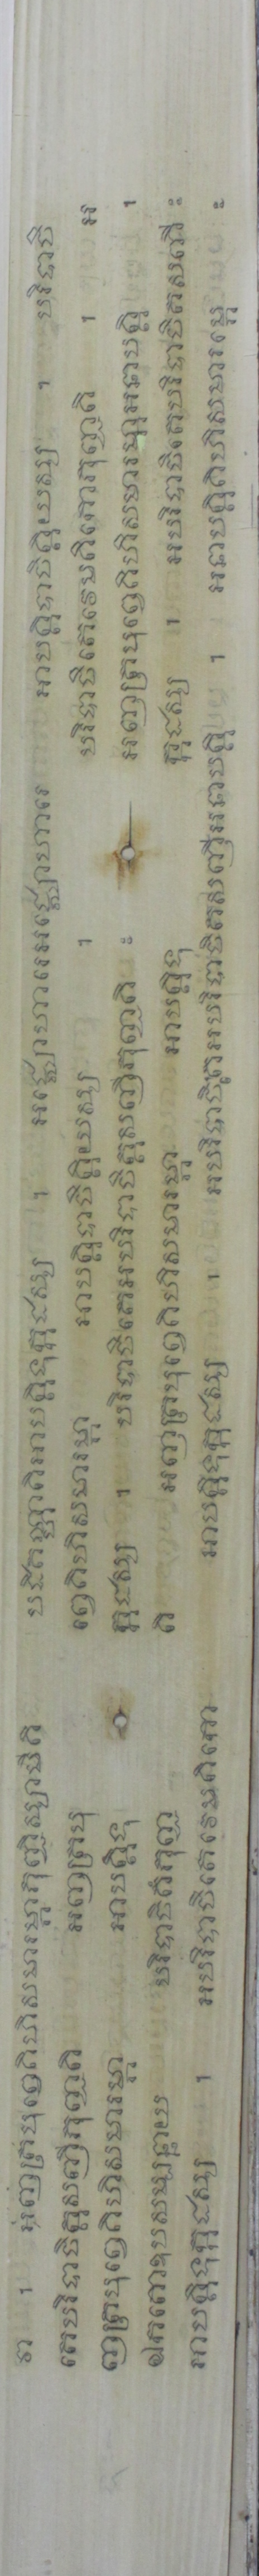 រា ។ អញ្ញត្របុព្វេគិហិសមារម្ភាភុញ្ជិស្សាមីតិ បដិគណ្ហាតិអាបត្តិទុក្កដស្ស ។ អជ្ឈោហារេអជ្ឈោហារេ អាបត្តិបាចិត្តិយស្ស ។ បរិបាចិ
តេបរិបាចិតសញ្ញីភុញ្ជតិ អញ្ញត្របុ ព្វេគិហិសមារម្ភា អាបត្តិបាចិត្តិយស្ស ។ បរិបាចិតេវេមតិកោភុញ្ជតិ ។ អ
ញ្ញត្របុព្វេគិហិសមារម្ភា អាបត្តិទុ ក្កដស្ស ។ បរិបាចិតេអបរិបាចិតសញ្ញីភុញ្ជតិ ៖ អញ្ញត្របុព្វេគិហិសមារម្ភាអនាបត្តិ ។
ឯកតោឧបសម្បន្នាយ បរិបាចិតំភុញ្ជ តិ អញ្ញត្របុព្វេគិហិសមារម្ភា អាបត្តិទុ ក្កដស្ស ។ អបរិបាចិតេបរិបាចិតសញ្ញី ៖
អាបត្តិទុក្កដស្ស ។ អបរិបាចិតេវេមតិកោ អាបត្តិទុក្កដស្ស ។ អបរិបាចិតេអបរិបាចិតសញ្ញីអនាបត្តិ ។ អនាបត្តិគិហិសមារម្ភេ ៖